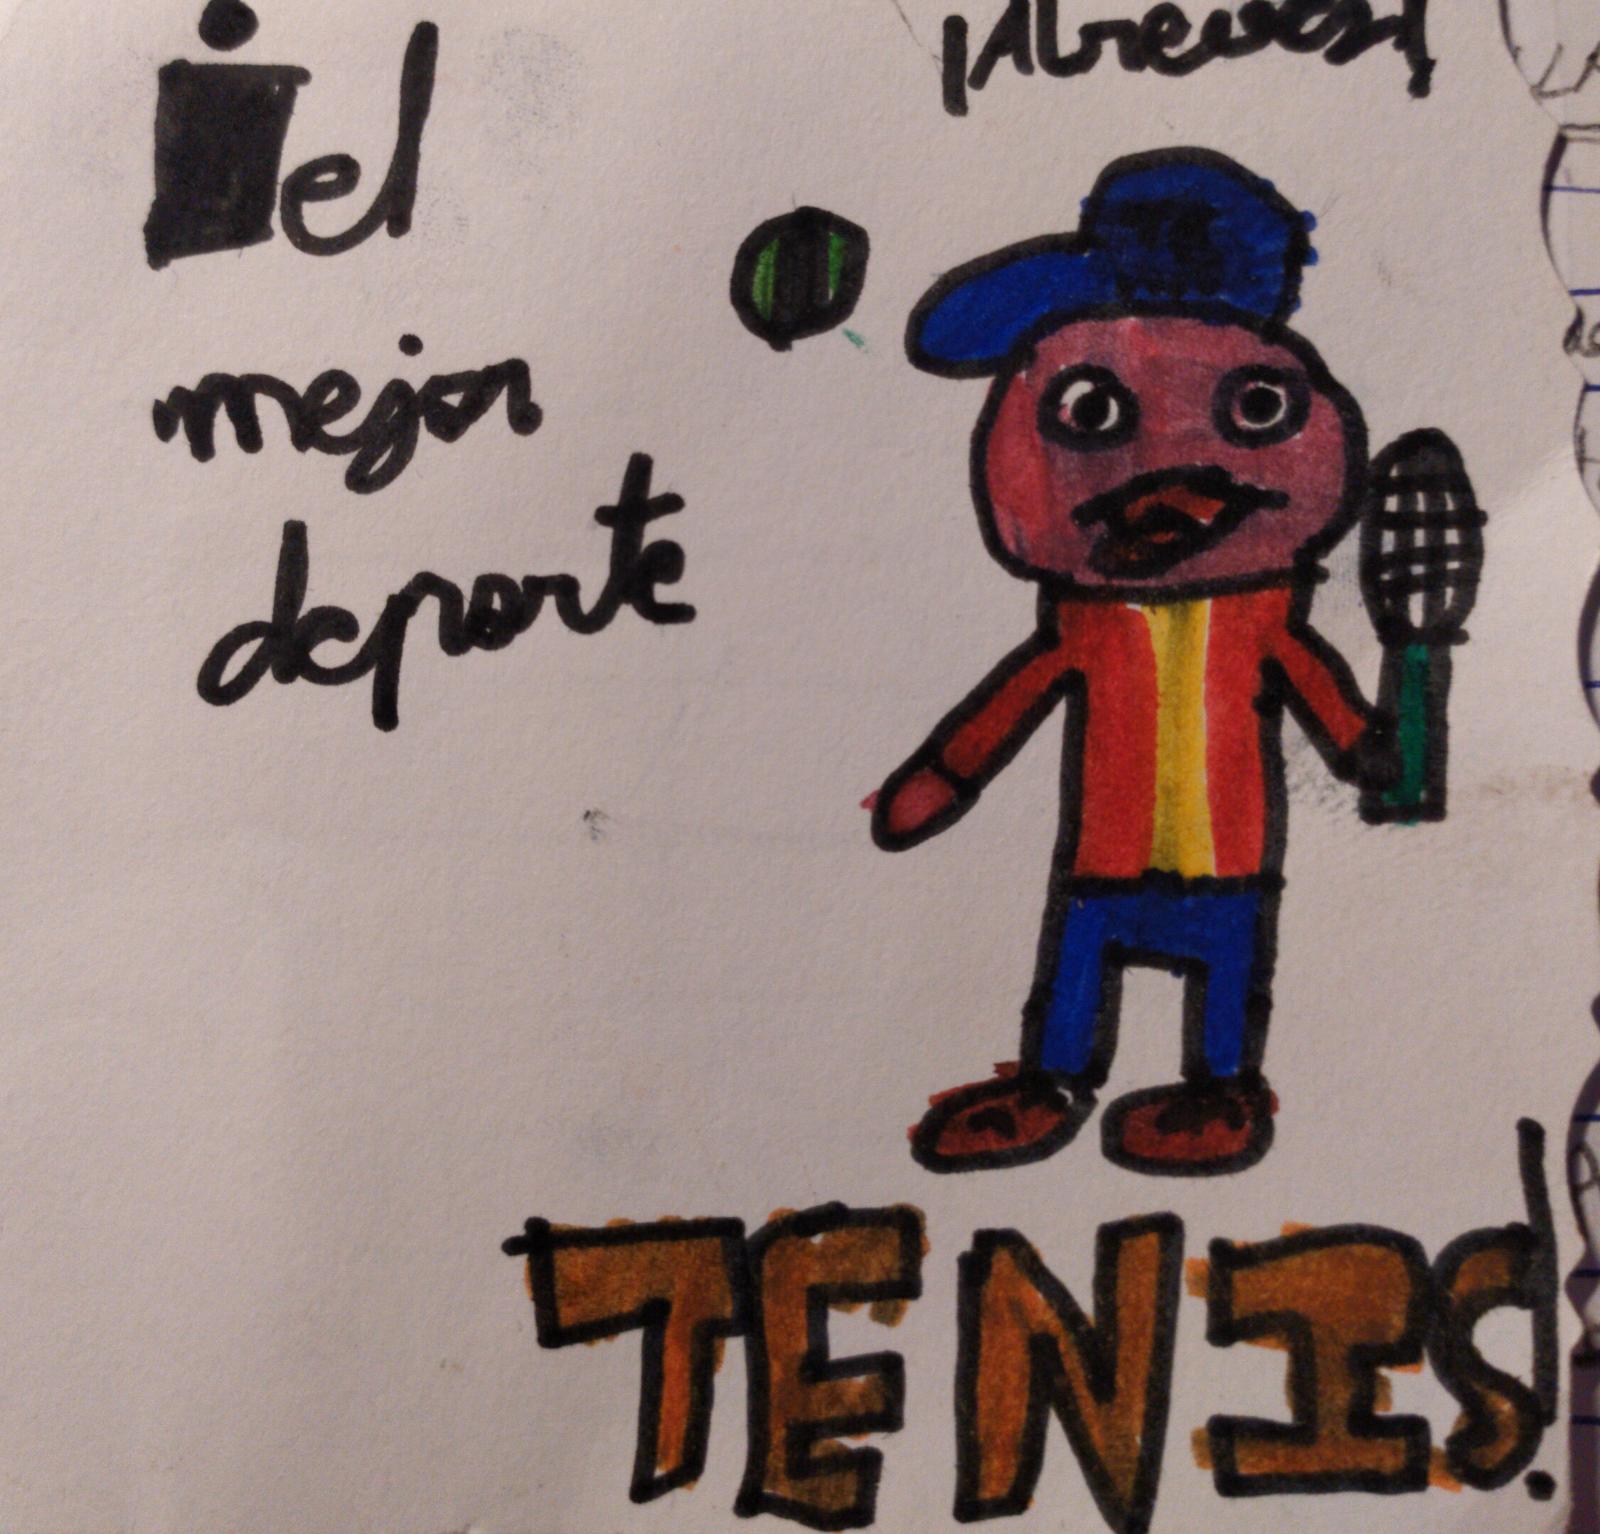 ¡Abrelos!
¡el
mejor
deporte
TENIS!